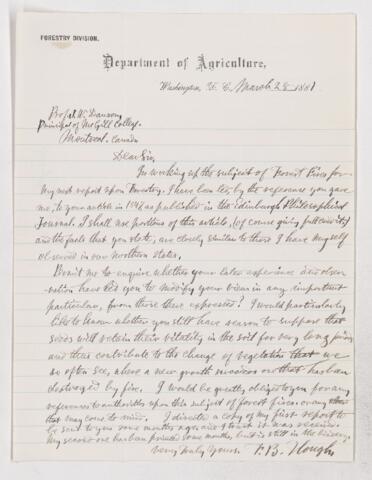 FORESTRY DIVISION.
Department of Agriculture,
Washington, D. C. March 28 1881
Prof. J. W. Dawson,
Principal of McGill College.
Montreal. Canada
Dear Sir,
In working up the subject of Forest Fires for
my next report upon Forestry, I have been led by the reference you gave
me, to your article in 1846 as published in the Edinburgh Philosophical
Journal. I shall use portions of this article, (of course giving full credit)
and the facts that you state, are closely similar to those I have myself
observed in our Northern States.
Permit me to enquire whether your later experience and obser-
vation have led you to modify your views in any important
particular, from those there expressed? I would particularly
like to know whether you still have reason to support that
seeds will retain their vitality in the soil for very long periods
and thus contribute to the change of vegetation that we
so often see, where a new growth succeeds one that has been
destroyed by fire. I would be greatly obliged to you for any
references to authorities upon this subject of forest fires, or any others
that may come to mind. I directed a copy of my first report to
be sent to you some months ago, and trust it was received.
My second one has been printed some months, but is still in the bindery.
Very truly yours F. B. Hough